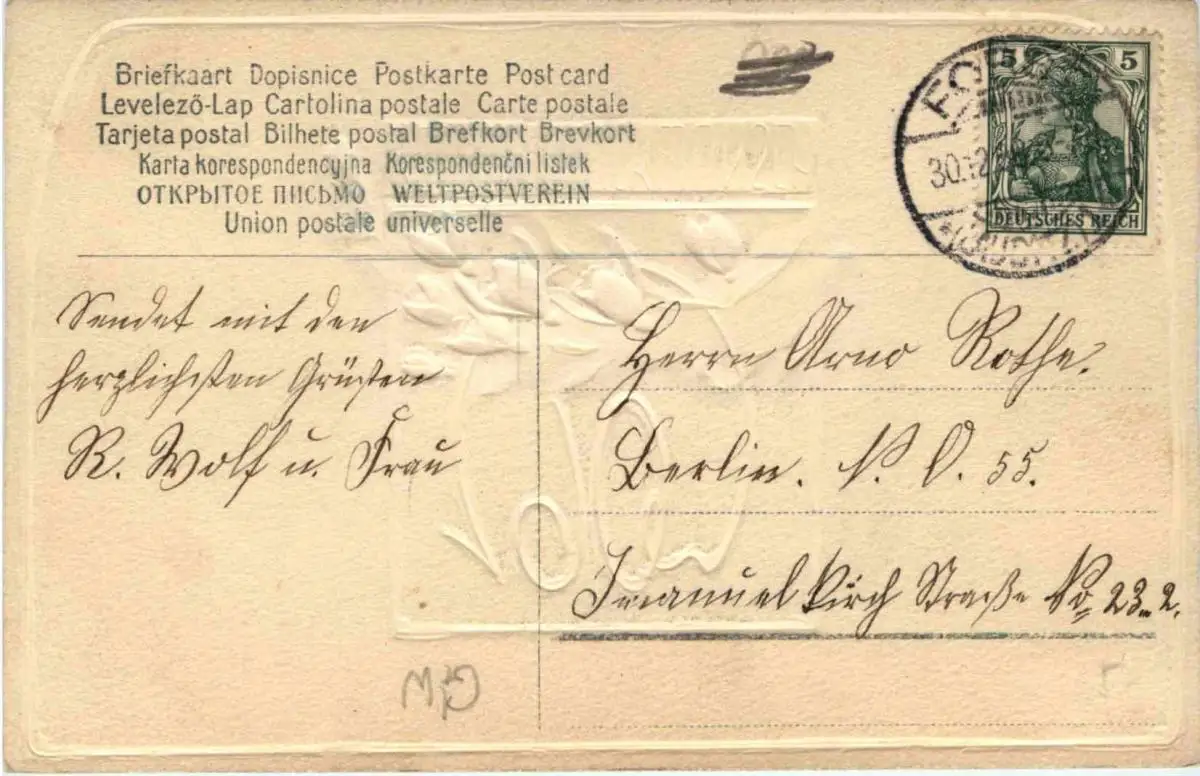 Briefkaart Dopisnice Postkarte Post card
Levelező-Lap Cartolina postale Carte postale
Tarjeta postal Bilhete postal Brefkort Brevkort
Karta korespondencyjna Korespondenčni listek
ОТКРЫТОЕ ПИСЬМО WELTPOSTVEREIN
Union postale universelle
5 5
DEUTSCHES REICH
30.12.
Sendet mit den
herzlichsten Grüßen
R. Wolf u. Frau
Herrn Arno Rothe.
Berlin. N. O. 55.
Imanuelkirch Straße No 23. 2.